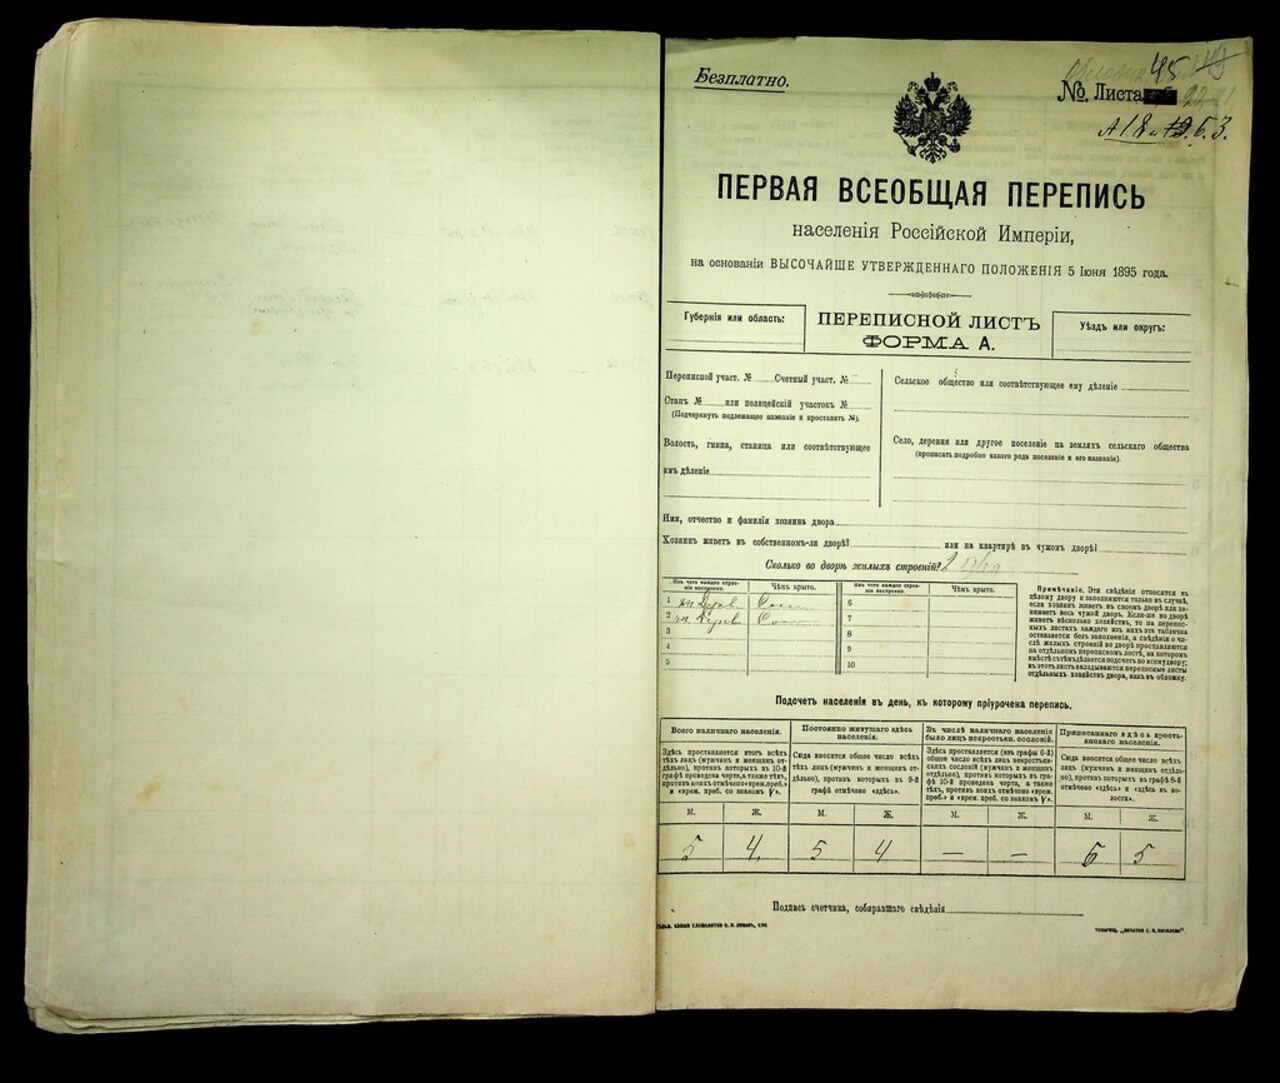 Безплатно.
№. Листа 45
А 18 Б. 3.
ПЕРВАЯ ВСЕОБЩАЯ ПЕРЕПИСЬ
населенія Россійской Имперіи,
на основаніи ВЫСОЧАЙШЕ УТВЕРЖДЕННАГО ПОЛОЖЕНІЯ 5 Іюня 1895 года.
Губернія или область:
ПЕРЕПИСНОЙ ЛИСТЪ
ФОРМА А.
Уѣздъ или округъ:
Переписной участ. № Счетный участ. №
Станъ № или полицейскій участокъ №
(Подчеркнуть подлежащее названіе и проставить №).
Волость, гмина, станица или соотвѣтствующее
имъ дѣленіе
Сельское общество или соотвѣтствующее ему дѣленіе
Село, деревня или другое поселеніе на земляхъ сельскаго общества
(прописать подробно какого рода поселеніе и его названіе).
Имя, отчество и фамилія хозяина двора
Хозяинъ живетъ въ собственномъ-ли дворѣ? или на квартирѣ въ чужомъ дворѣ?
Сколько во дворѣ жилыхъ строеній? 2
Изъ чего каждое строеніе построено. Чѣмъ крыто. Изъ чего каждое строеніе построено. Чѣмъ крыто.
1 6
2 7
3 8
4 9
5 10
Примѣчаніе. Эти свѣдѣнія относятся къ
цѣлому двору и заполняются только въ случаѣ,
если хозяинъ живетъ въ своемъ дворѣ или занимаетъ
весь чужой дворъ. Если-же во дворѣ
живетъ нѣсколько хозяйствъ, то на переписныхъ
листахъ каждаго изъ нихъ эта табличка
оставляется безъ заполненія, а свѣдѣнія о числѣ
жилыхъ строеній во дворѣ проставляются
на отдѣльномъ переписномъ листѣ, на которомъ
вмѣстѣ съ тѣмъ дѣлается подсчетъ по всему двору;
въ этотъ листъ вкладываются переписные листы
отдѣльныхъ хозяйствъ двора, какъ въ обложку.
Подсчетъ населенія въ день, къ которому пріурочена перепись.
Всего наличнаго населенія.
Здѣсь проставляется итогъ всѣхъ
тѣхъ лицъ (мужчинъ и женщинъ отдѣльно),
противъ которыхъ въ 10-й
графѣ проведена черта, а также тѣхъ,
противъ коихъ отмѣчено «врем. преб.»
и «врем. преб. со знакомъ V».
Постоянно живущаго здѣсь
населенія.
Сюда вносится общее число всѣхъ
тѣхъ лицъ (мужчинъ и женщинъ отдѣльно),
противъ которыхъ въ 9-й
графѣ отмѣчено «здѣсь».
Въ числѣ наличнаго населенія
было лицъ некрестьян. сословій.
Здѣсь проставляется (изъ графы 6-й)
общее число всѣхъ лицъ некрестьянскихъ
сословій (мужчинъ и женщинъ
отдѣльно), противъ которыхъ въ графѣ
10-й проведена черта, а также
тѣхъ, противъ коихъ отмѣчено «врем.
преб.» и «врем. преб. со знакомъ V».
Приписаннаго здѣсь крестьянскаго
населенія.
Сюда вносится общее число всѣхъ
лицъ (мужчинъ и женщинъ отдѣльно),
противъ которыхъ въ графѣ 8-й
отмѣчено «здѣсь» и «здѣсь въ волости».
М. Ж. М. Ж. М. Ж. М. Ж.
5 4. 5 4 — — 6 5
Подпись счетчика, собиравшаго свѣдѣнія